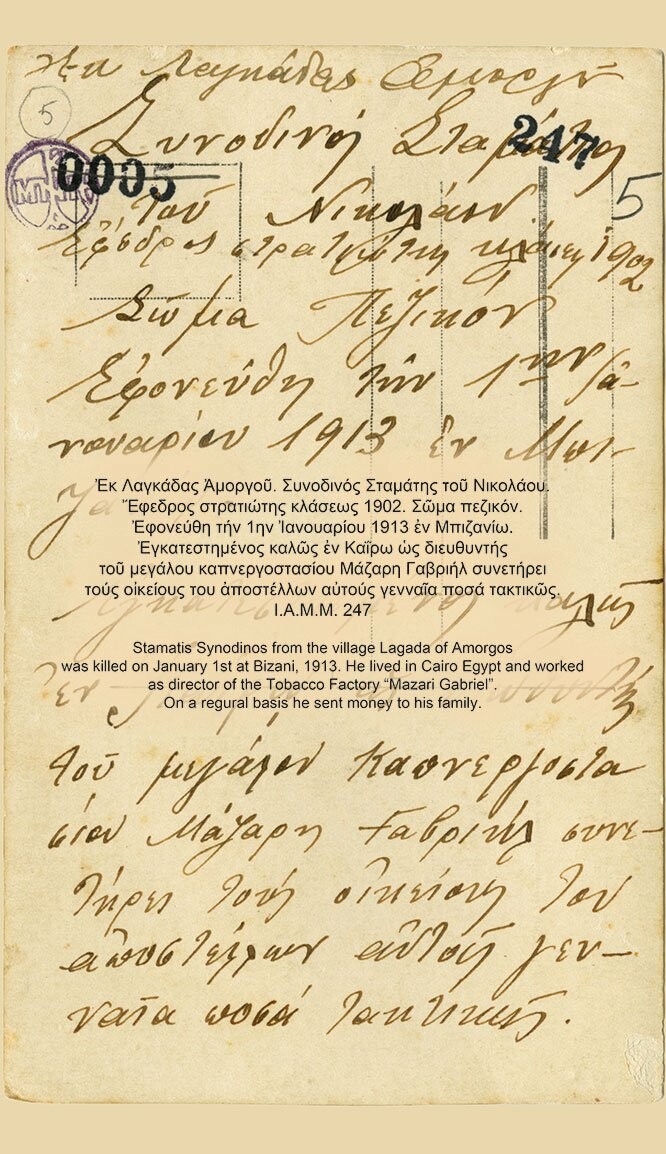 Ἐκ Λαγκάδας Ἀμοργοῦ
5
Συνοδινός Σταμάτης
247
0005
5
τοῦ Νικολάου
Ἔφεδρος στρατιώτης κλάσεως 1902
Σῶμα Πεζικόν
Ἐφονεύθη τήν 1ην Ἰα-
νουαρίου 1913 ἐν Μπι-
Ἐκ Λαγκάδας Ἀμοργοῦ. Συνοδινός Σταμάτης τοῦ Νικολάου.
Ἔφεδρος στρατιώτης κλάσεως 1902. Σῶμα πεζικόν.
Ἐφονεύθη τήν 1ην Ἰανουαρίου 1913 ἐν Μπιζανίω.
Ἐγκατεστημένος καλῶς ἐν Καΐρω ὡς διευθυντής
τοῦ μεγάλου καπνεργοστασίου Μάζαρη Γαβριήλ συνετήρει
τούς οἰκείους του ἀποστέλλων αὐτούς γενναῖα ποσά τακτικῶς.
Ι.Α.Μ.Μ. 247
καλῶς
Stamatis Synodinos from the village Lagada of Amorgos
was killed on January 1st at Bizani, 1913. He lived in Cairo Egypt and worked
as director of the Tobacco Factory “Mazari Gabriel”.
On a regural basis he sent money to his family.
ἐν
τοῦ μεγάλου Καπνεργοστα
σίου Μάζαρη Γαβριήλ συνε-
τήρει τούς οἰκείους του
ἀποστέλλων αὐτούς γεν-
ναῖα ποσά τακτικῶς.